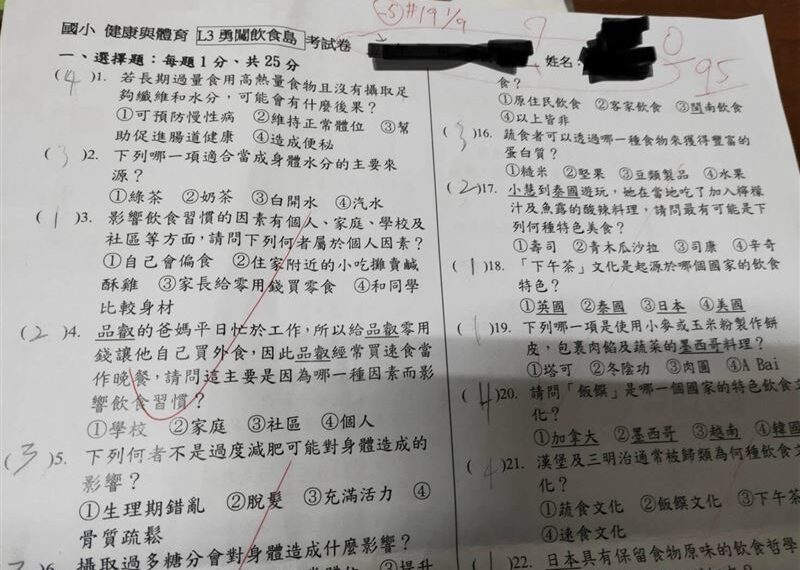 (-5) #19 1/9
國小 健康與體育 L3勇闖飲食島 考試卷
姓名:
95
一、選擇題：每題1分、共25分
(4)1. 若長期過量食用高熱量食物且沒有攝取足
夠纖維和水分，可能會有什麼後果？
①可預防慢性病 ②維持正常體位 ③幫
助促進腸道健康 ④造成便秘
(3)2. 下列哪一項適合當成身體水分的主要來
源？
①綠茶 ②奶茶 ③白開水 ④汽水
(1)3. 影響飲食習慣的因素有個人、家庭、學校及
社區等方面，請問下列何者屬於個人因素？
①自己會偏食 ②住家附近的小吃攤賣鹹
酥雞 ③家長給零用錢買零食 ④和同學
比較身材
(2)4. 品叡的爸媽平日忙於工作，所以給品叡零用
錢讓他自己買外食，因此品叡經常買速食當
作晚餐，請問這主要是因為哪一種因素而影
響飲食習慣？
①學校 ②家庭 ③社區 ④個人
(3)5. 下列何者不是過度減肥可能對身體造成的
影響？
①生理期錯亂 ②脫髮 ③充滿活力 ④
骨質疏鬆
)6. 攝取過多糖分會對身體造成什麼影響？
③提升
食？
①原住民飲食 ②客家飲食 ③閩南飲食
④以上皆非
(3)16. 蔬食者可以透過哪一種食物來獲得豐富的
蛋白質？
①糙米 ②堅果 ③豆類製品 ④水果
(2)17. 小慧到泰國遊玩，她在當地吃了加入檸檬
汁及魚露的酸辣料理，請問最有可能是下
列何種特色美食？
①壽司 ②青木瓜沙拉 ③司康 ④辛奇
(1)18. 「下午茶」文化是起源於哪個國家的飲食
特色？
①英國 ②泰國 ③日本 ④美國
(1)19. 下列哪一項是使用小麥或玉米粉製作餅
皮，包裹肉餡及蔬菜的墨西哥料理？
①塔可 ②冬陰功 ③肉圓 ④A Bai
(4)20. 請問「飯饌」是哪一個國家的特色飲食文
化？
①加拿大 ②墨西哥 ③越南 ④韓國
(4)21. 漢堡及三明治通常被歸類為何種飲食文
化？
①蔬食文化 ②飯饌文化 ③下午茶
④速食文化
(1)22. 日本具有保留食物原味的飲食哲學